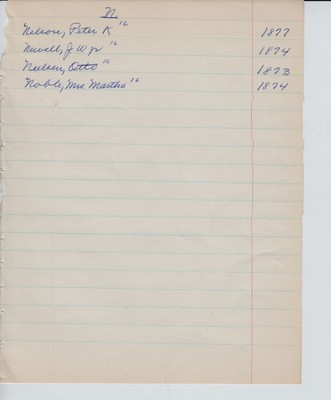 N.
Nelson, Peter K 16 1877
Newell, J W jr 16 1874
Nielsen, Otto 16 1873
Noble, Mrs Martha 16 1874